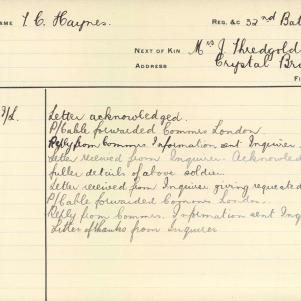 NAME I. C. Haynes. REG. &C 32nd Bat
NEXT OF KIN Mrs J. Thredgold
ADDRESS Crystal Bro
FI
Letter acknowledged.
P/Cable forwarded Commrs London
Reply from Commrs. Information sent Inquirer.
Letter received from Inquirer. Acknowled
fuller details of above soldier.
Letter received from Inquirer giving requested
P/Cable forwarded Commrs London.
Reply from Commrs. Information sent Inq
Letter of thanks from Inquirer